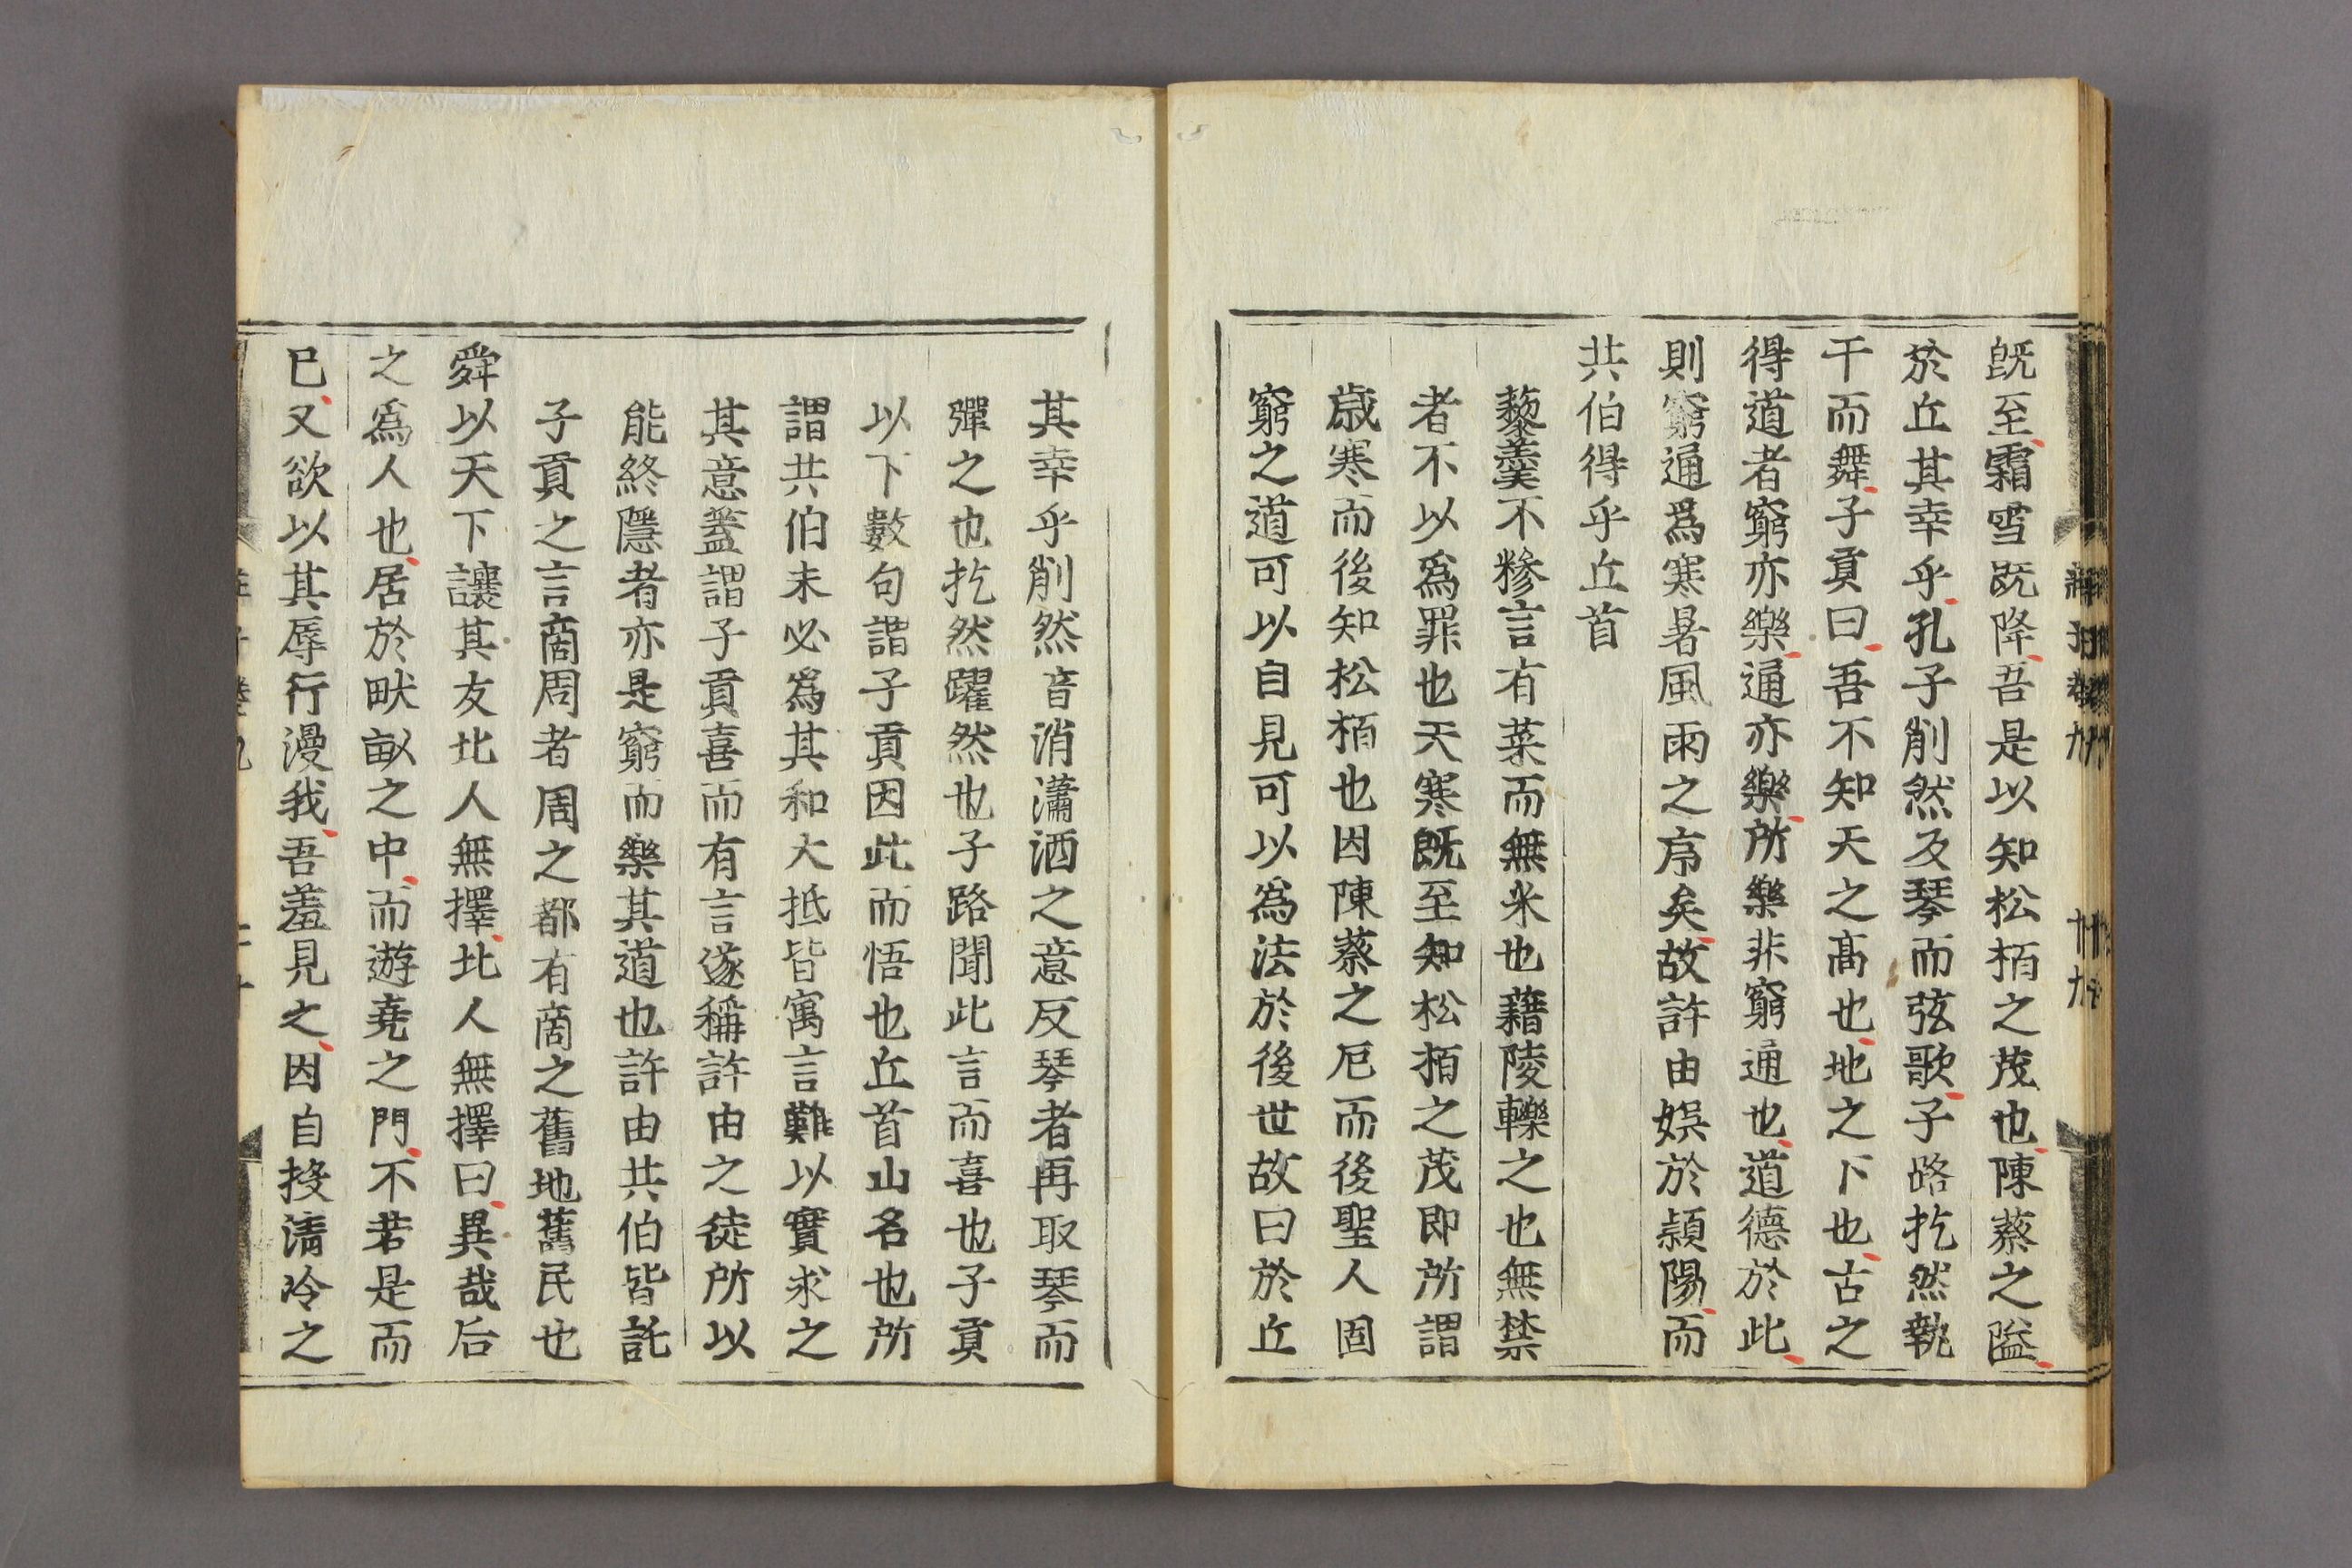 既至霜雪既降吾是以知松栢之茂也陳蔡之隘
於丘其幸乎孔子削然反琴而弦歌子路扢然執
干而舞子貢曰吾不知天之高也地之下也古之
得道者窮亦樂通亦樂所樂非窮通也道德於此
則窮通爲寒暑風雨之序矣故許由娛於潁陽而
共伯得乎丘首
藜羹不糝言有菜而無米也藉陵轢之也無禁
者不以爲罪也天寒既至知松栢之茂即所謂
歲寒而後知松栢也因陳蔡之厄而後聖人固
窮之道可以自見可以爲法於後世故曰於丘
其幸乎削然音消瀟洒之意反琴者再取琴而
彈之也扢然躍然也子路聞此言而喜也子貢
以下數句謂子貢因此而悟也丘首山名也所
謂共伯未必爲其和大抵皆寓言難以實求之
其意蓋謂子貢喜而有言遂稱許由之徒所以
能終隱者亦是窮而樂其道也許由共伯皆託
子貢之言商周者周之都有商之舊地舊民也
舜以天下讓其友北人無擇北人無擇曰異哉后
之爲人也居於畎畝之中而遊堯之門不若是而
已又欲以其辱行漫我吾羞見之因自投清泠之